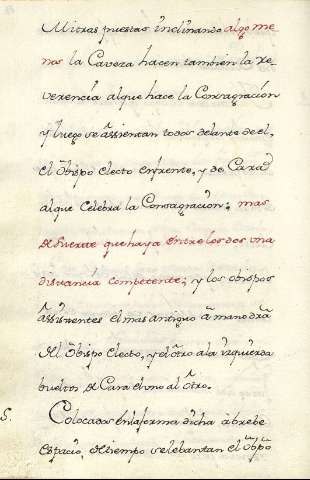 Mitras puestas inclinando algo me-
nos la Caveza hacen tambien la re-
verencia alque hace la Consagracion
y luego se assientan todos delante de el,
el Obispo electo enfrente, y de Cara à
alque Celebra la Consagracion; mas
de suerte que haya entre los dos una
distancia competente; y los obispos
Assistentes el mas antiguo à mano dra
del Obispo Electo, y el otro ala izquierda
bueltos de Cara el uno al otro.
5. Colocados en la forma dicha à brebe
espacio, de tiempo se lebantan el Obpo